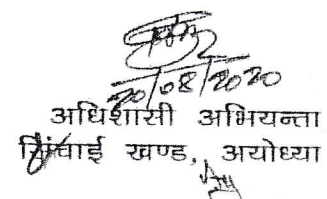 20/08/2020
अधिशासी अभियन्ता
सिंचाई खण्ड, अयोध्या